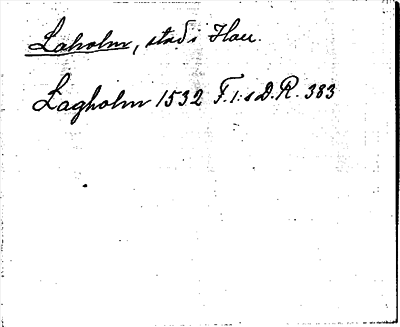 Laholm, stad i Hall.
Lagholm 1532 F.1:s D.R. 383